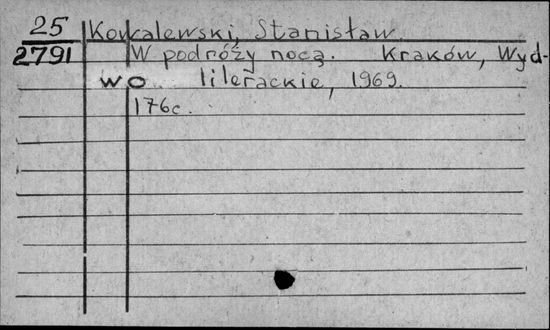 25 Kowalewski, Stanisław.
2791 W podróży nocą. Kraków, Wyd-
wo literackie, 1969.
176c.